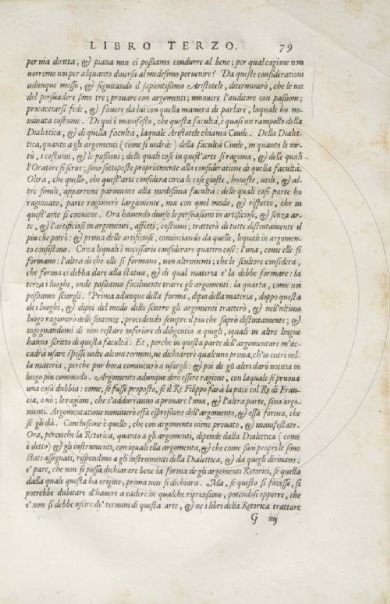 LIBRO TERZO. 79
per via diritta, & piana non ci possiamo condurre al bene; per qual cagione non
vorremo noi per alquanto diversa al medesimo pervenire? Da queste considerationi
adunque mosso, & seguitando il sapientissimo Aristotele, determinerò, che le vie
del persuadere sono tre; provare con argomenti; muovere l'auditore con passioni;
procacciarsi fede, & favore da lui con quella maniera di parlare, laquale ho no-
minata costume. Di qui è manifesto, che questa facultà, è quasi un rampollo della
Dialettica, & di quella facultà, laquale Aristotele chiama Civile. Della Dialet-
tica, quanto a gli argomenti (come si vedrà) della facultà Civile, in quanto le vir-
tù, i costumi, & le passioni; delle quali cose in quest'arte si ragiona, & delle quali
l'Oratore si serve; sono sottoposte propriamente alla consideratione di quella facultà.
Oltra, che quello, che quest'arte considera circa le cose giuste, honeste, utili, & al-
tre simili, appartiene parimente alla medesima facultà: delle quali cose parte ho
ragionato, parte ragionerò largamente, ma con quel modo, & rispetto, che in
quest'arte si conviene. Ora havendo divise le persuasioni in artificiose, & senza ar-
te, & l'artificiose in argomenti, affetti, costumi; tratterò di tutte distintamente il
più che potrò; & prima delle artificiose, cominciando da quelle, lequali in argomen-
to consistono. Circa lequali è necessario considerare quattro cose: l'una, come elle si
formano: l'altra di che elle si formano, non altrimenti; che lo scultore considera,
che forma ei debba dare alla statua, & di qual materia e' la debbe formare: la
terza i luoghi, onde possiamo facilmente trarre gli argomenti: la quarta, come noi
possiamo sciorgli. Prima adunque della forma, dipoi della materia, doppo questa
de i luoghi, & dipoi del modo dello sciorre gli argomenti tratterò, & nell'ultimo
luogo ragionerò delle sentenze, procedendo sempre il più che saprò distintamente; &
ingegnandomi di non restare inferiore di diligentia a quegli, i quali in altre lingue
hanno scritto di questa facultà. Et, perche in questa parte dell'argomentare m'ac-
cadrà usare spesse volte alcuni termini, ne dichiarerò qualcuno prima, ch'io entri nel-
la materia, perche pur hora comincierò a usargli: & poi de gli altri darò notitia in
luogo più commodo. Argomento adunque dirò essere ragione, con laquale si pruova
una cosa dubbia: come, se fusse proposto, se il Re Filippo farà la pace col Re di Fran-
cia, o nò; le ragioni, che s'addurranno a provare l'una, & l'altra parte, sono argo-
menti. Argomentatione nominerò essa espressione dell'argomento, & essa forma, che
se gli dà. Conclusione è quello, che con argomento viene provato, & manifestato.
Ora, percioche la Retorica, quanto a gli argomenti, dipende dalla Dialettica (come
è detto) & gli instrumenti, con i quali ella argomenta, & che come suoi proprii le sono
stati assegnati, rispondono a gli instrumenti della Dialettica, & da quegli dirivano:
e' pare, che non si possa dichiarare bene la forma de gli argomenti Retorici, se quella
dalla quale questa ha origine, prima non si dichiara. Ma, se questo si facesse, si
potrebbe dubitare d'havere a cadere in qualche riprensione, potendosi opporre, che
e' non si debbe uscire de' termini di questa arte, & ne i libri della Retorica trattare
G iiij